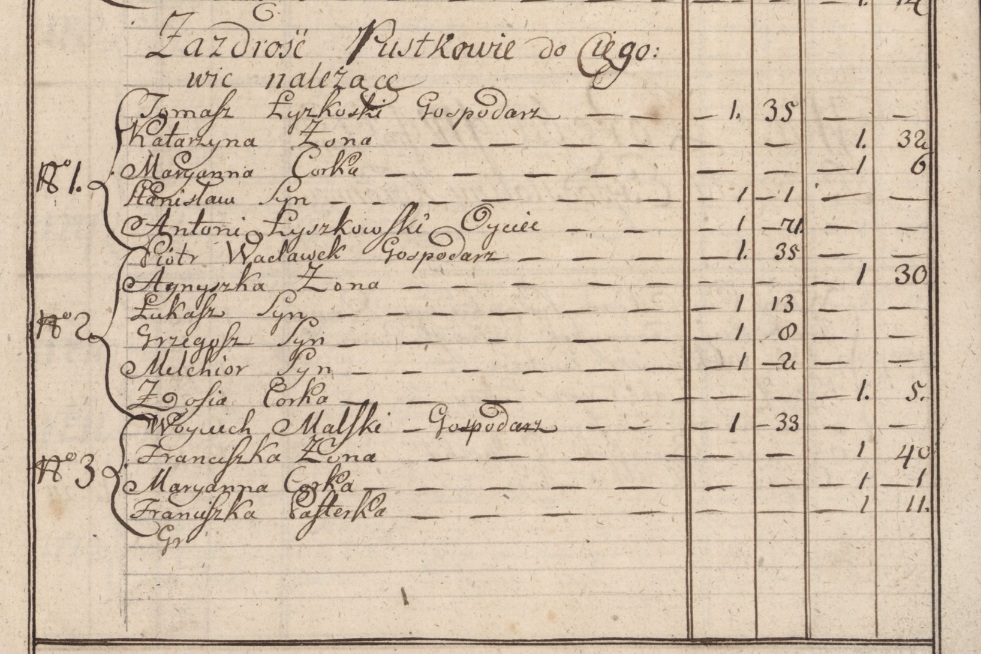 1. 14
Zazdrość Pustkowie do Ciego:
wic należące
Tomasz Łyzkoski Gospodarz — 1. 35 — —
Katarzyna Zona — — — 1. 32
Maryanna Corka — — — 1 6
Stanisław Syn — 1 – 1 — —
Nro 1.
Antoni Łyszkowski Oyciec — 1 – 71. — —
Piotr Wacławek Gospodarz — 1. 35 — —
Agnyszka Zona — — — 1 30
Łukasz Syn — 1 13 — —
Nro 2
Grzegosz Syn — 1 8 — —
Melchior Syn — 1 – 2 — —
Zofia Corka — — — 1. 5.
Woyciech Malski — Gospodarz — 1 – 33 — —
Franciszka Zona — — — 1 40
Nro 3
Maryanna Corka — — — 1 – 1
Franciszka Pasterka — — — 1 11.
Gr